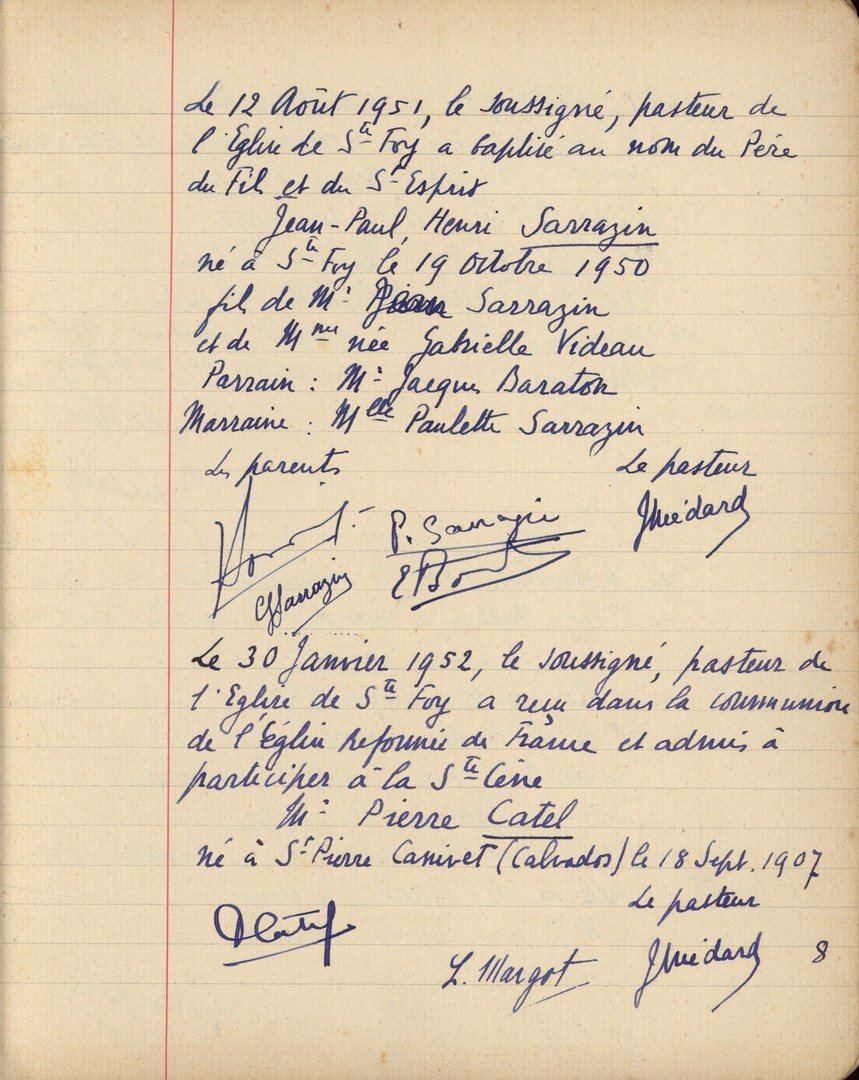 Le 12 Août 1951, le soussigné, pasteur de
l'Eglise de Ste Foy a baptisé au nom du Père
du Fils et du St Esprit
Jean-Paul, Henri Sarrazin
né à Ste Foy le 19 Octobre 1950
fils de Mr Sarrazin
et de Mme née Gabrielle Videau
Parrain : Mr Jacques Baraton
Marraine : Mlle Paulette Sarrazin
Les parents Le pasteur
P. Sarrazin JMédard
GSarrazin
Le 30 Janvier 1952, le soussigné, pasteur de
l'Eglise de Ste Foy a reçu dans la communion
de l'Église Réformée de France et admis à
participer à la Ste Cène
Mr Pierre Catel
né à St Pierre Canivet (Calvados) le 18 Sept. 1907
Le pasteur
PCatel
L. Margot JMédard 8